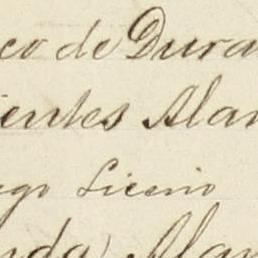 co de Dura
ientes Alam
ego Licenio
nda Alam